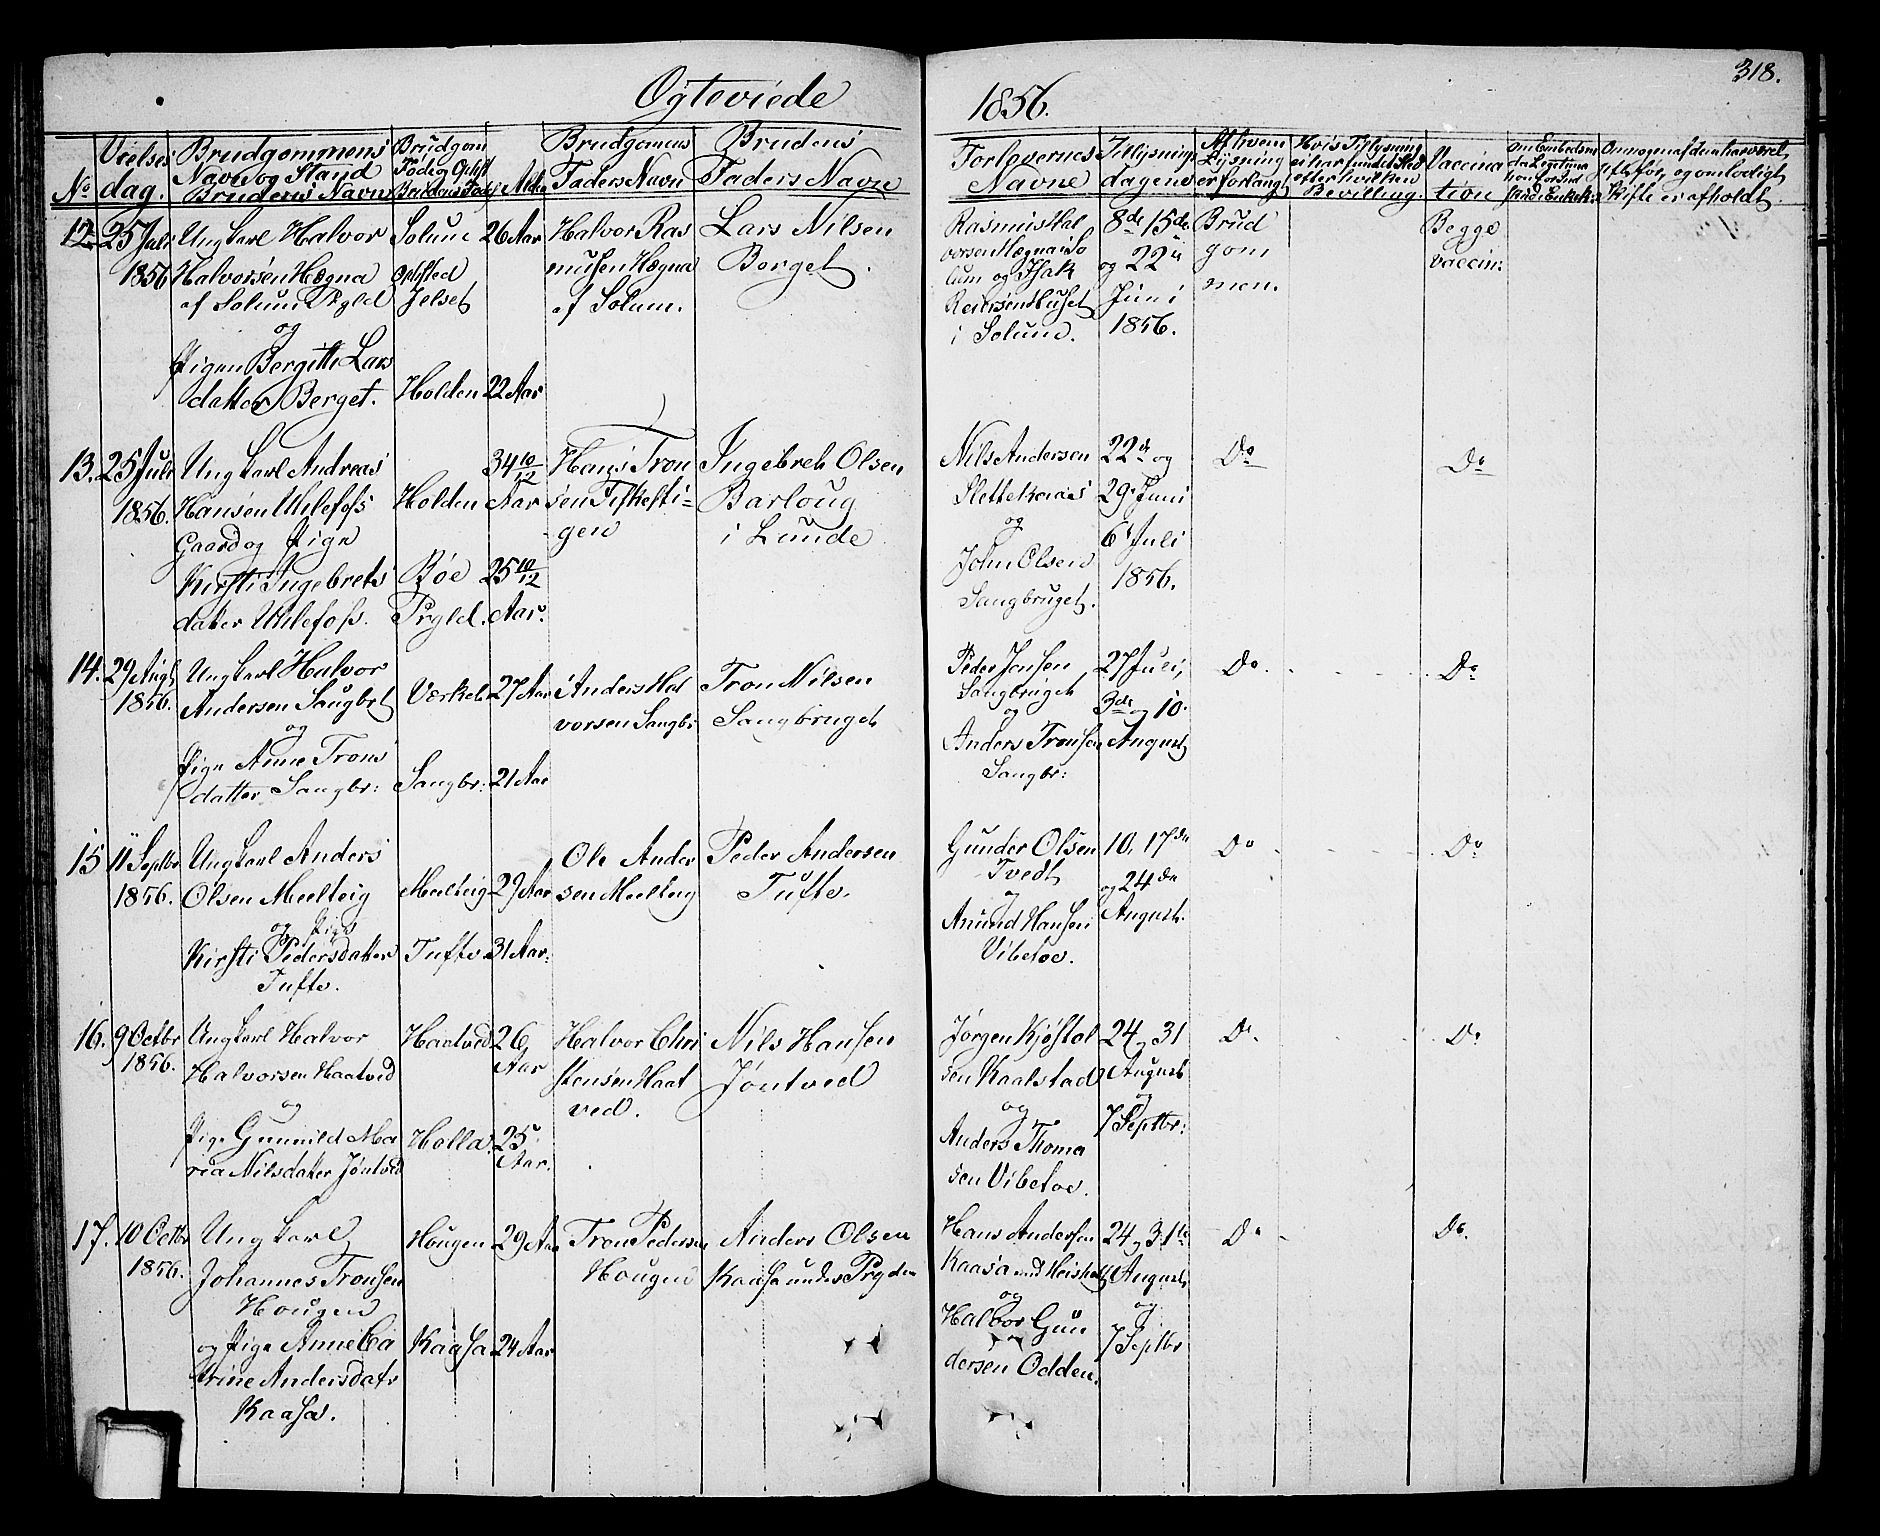 318.
Ogteviede 1856.
No.
Vielses dag.
Brudgommens Navn og Stand Brudens Navn
Brudgom Føde og Opfst Brudens Føde
Alder
Brudgomens Faders Navn
Brudens Faders Navn
Forlovernes Navne
Tillysnings dagene
Af hvem Lysning er forlangt
Hvis Tillysning ei har fundet Sted efter hvilken Bevilling.
Vaccination
Om nogen af dem har været gift før, og om lovligt Skifte er afholdt.
12.
25 Juli
1856
Ungkarl Halvor
Halvorsen Hægna
af Solum Prgld
og
Pigen Bergitte Lars
datter Berget.
Solum
Opfsted
Jelset
Holden
26 Aar
22 Aar
Halvor Ras
musen Hægna
af Solum.
Lars Nilsen
Berget.
Rasmus Hal
vorsen Hægna i So
lum og Isak
Reiersen Huset
i Solum.
8de 15de
og 22
Juni
1856.
Brud
gom
men.
Begge
vaccin:
13.
25 Juli
1856.
Ungkarl Andreas
Hansen Uhlefoss
Gaard og Pige
Kirsti Ingebrets
dater Uhlefoss.
Holden
Bøe
Prgld.
34 10/12
Aar
25 10/12
Aar.
Hans Tron
sen Fiskesti-
gen
Ingebret Olsen
Barloug
i Lunde
Nils Andersen
Sletteknæs
og
John Olsen
Saugbruget.
22de og
29. Juni
6 Juli
1856.
Do
Do
14.
29 Augt
1856.
Ungkarl Halvor
Andersen Saugbrt
og
Pige Anne Trons
datter Saugbr:
Værket
Saugbr:
27 Aar
21 Aar
Anders Hal
vorsen Saugbr
Tron Nilsen
Saugbruget
Peder Jensen
Saugbruget
og
Anders Tronsen
Saugbr:
27 Juli,
3de og 10.
August
Do.
Do
15
11 Septbr
1856.
Ungkarl Anders
Olsen Meelteig
og Pige
Kirsti Pedersdatter
Tufte.
Meelteig
Tufte.
29 Aar
31 Aar.
Ole Ander
sen Meelteig
Peder Andersen
Tufte.
Gunder Olsen
Tvedt
og
Anund Hansen
Vibetoe.
10, 17de
og 24de
August.
Do
Do
16.
9 Octbr
1856.
Ungkarl Halvor
Halvorsen Haatved
og
Pige Gunnild Ma
ria Nilsdater Jøntved
Haatved
Holla.
26
Aar
25
Aar.
Halvor Chri
stensen Haat
ved.
Nils Hansen
Jøntved
Jørgen Kjøstol
sen Kaalstad
og
Anders Thoma
sen Vibetoe.
24 og 31
August
og
7 Septbr:
Do
Do
17.
10 Octbr
1856.
Ungkarl
Johannes Tronsen
Hougen
og Pige Anne Ca
trine Andersdatr
Kaasa.
Hougen
Kaasa
29 Aar
24 Aar
Tron Pedersen
Hougen
Anders Olsen
Kaasa under
Hans Andersen
Kaasa
og
Halvor Gun
dersen Odden.
24 og 31te
August
og
7 Septbr
Do
Do.